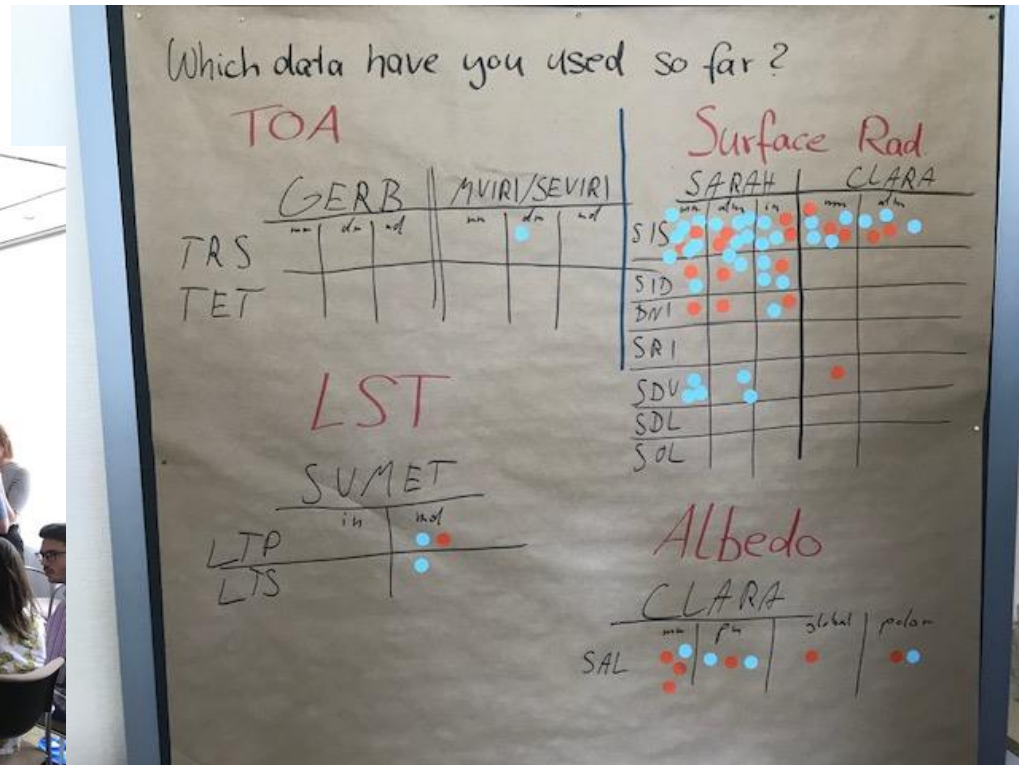 Which data have you used so far?
TOA
GERB MVIRI/SEVIRI
mm dm md mm dm md
TRS
TET
Surface Rad.
SARAH CLARA
mm dm in mm dm
SIS
SID
DNI
SRI
SDU
SDL
SOL
LST
SUMET
in md
LTP
LTS
Albedo
CLARA
mm pm global polar
SAL